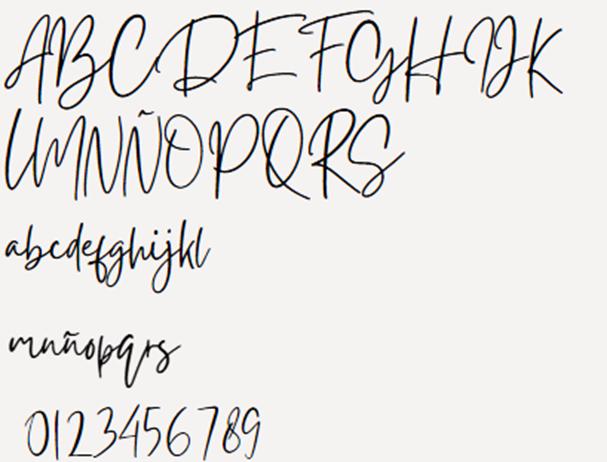 ABCDEFGHIJK
LMNÑOPQRS
abcdefghijkl
mnñopqrs
0123456789